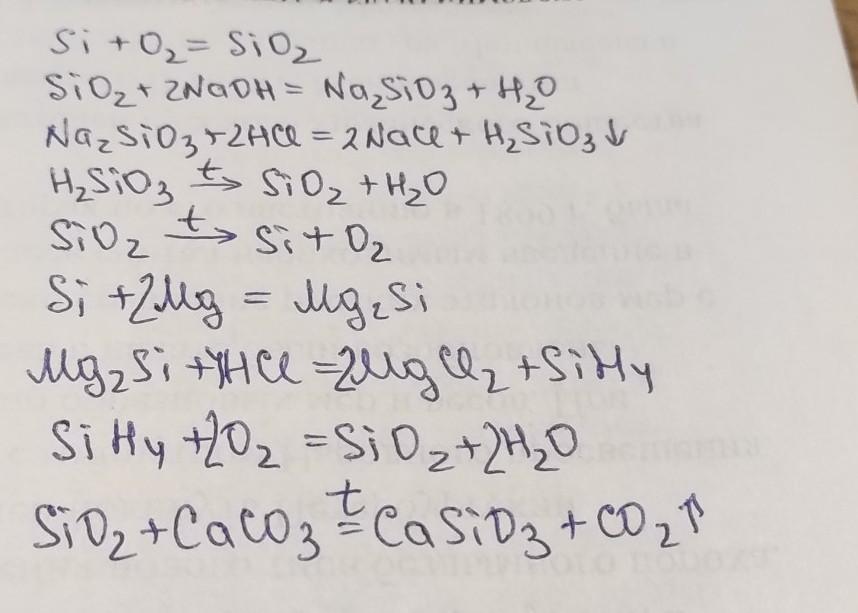 Si + O₂ = SiO₂
SiO₂ + 2NaOH = Na₂SiO₃ + H₂O
Na₂SiO₃ + 2HCl = 2NaCl + H₂SiO₃↓
H₂SiO₃ t→ SiO₂ + H₂O
SiO₂ t→ Si + O₂
Si + 2Mg = Mg₂Si
Mg₂Si + 4HCl = 2MgCl₂ + SiH₄
SiH₄ + 2O₂ = SiO₂ + 2H₂O
SiO₂ + CaCO₃ t= CaSiO₃ + CO₂↑